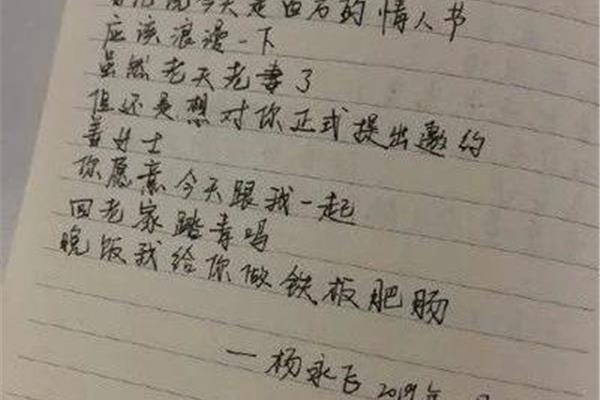 说今天是的情人节
应该浪漫一下
虽然老夫老妻了
但还是想对你正式提出邀约
姜女士
你愿意今天跟我一起
回老家踏青吗
晚饭我给你做铁板肥肠
—杨永飞 2019年